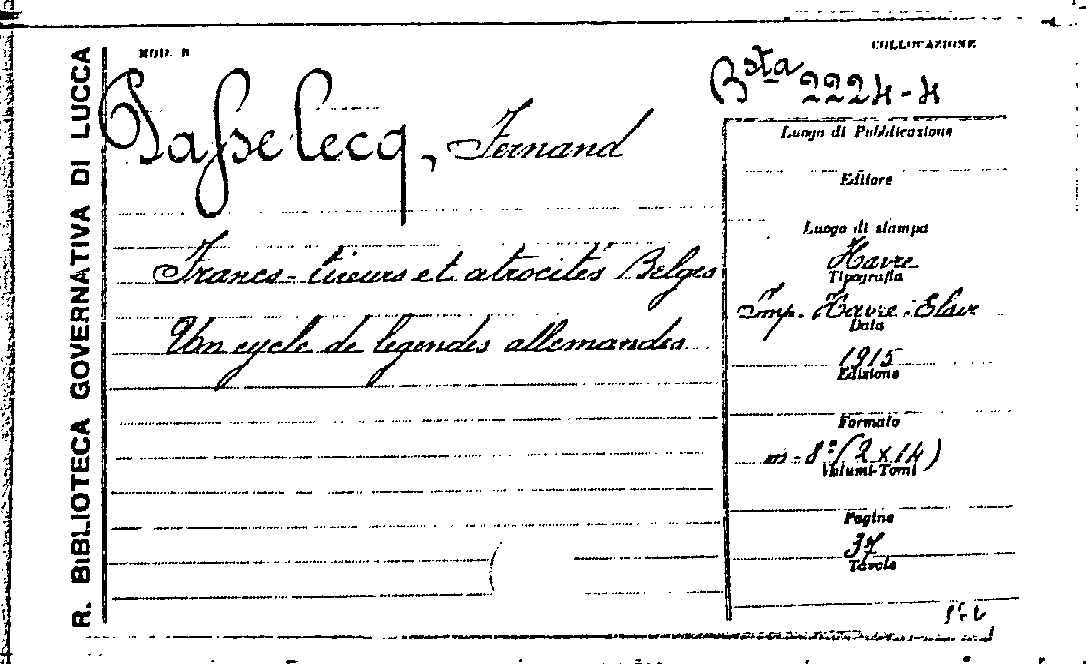 R. BIBLIOTECA GOVERNATIVA DI LUCCA
MOD. B
COLLOCAZIONE
Bsta 2224-4
Passelecq, Fernand
Luogo di Pubblicazione
Editore
Luogo di stampa
Francs-tireurs et atrocités Belges
Havre
Tipografia
Imp. Havre-Elair
Data
Un cycle de légendes allemandes
1915
Edizione
Formato
in-8º (2 x 14)
Volumi-Tomi
Pagine
37
Tavole